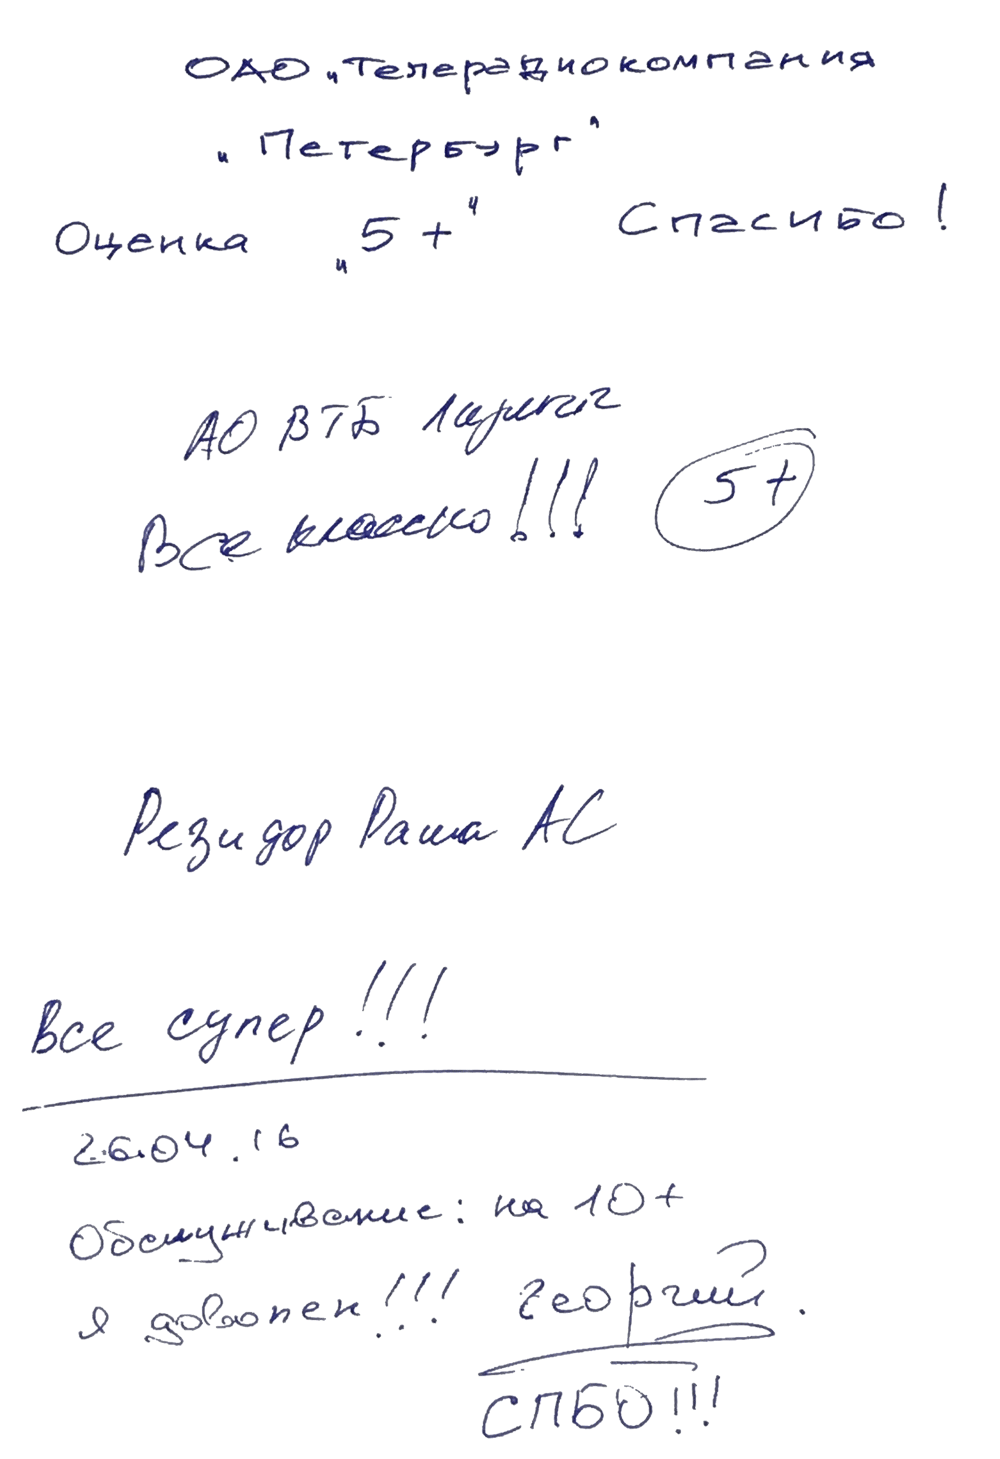 ОАО „Телерадиокомпания
„Петербург"
Оценка „5+" Спасибо!
АО ВТБ Лизинг
Все классно!!! 5+
Резидор Раша АС
Все супер!!!
26.04.16
Обслуживание: на 10+
я доволен!!! Георгий.
СПБО!!!